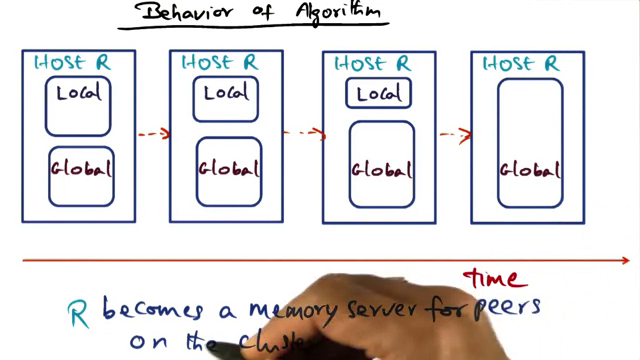 Behavior of Algorithm
HOST R HOST R HOST R HOST R
Local Local Local
Global Global Global Global
time
R becomes a memory server for peers
on the cluster